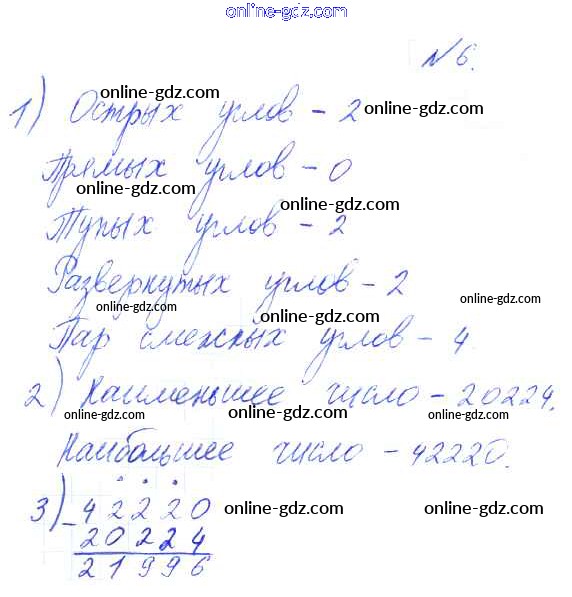 online-gdz.com
N 6.
1) Острых углов - 2
online-gdz.com online-gdz.com
Прямых углов - 0
online-gdz.com online-gdz.com
Тупых углов - 2
Развернутых углов - 2
online-gdz.com online-gdz.com
Пар смежных углов - 4
online-gdz.com
2) Наименьшее число - 20224.
online-gdz.com online-gdz.com online-gdz.com
Наибольшее число - 42220.
3) - 42220
online-gdz.com online-gdz.com
20224
21996
online-gdz.com